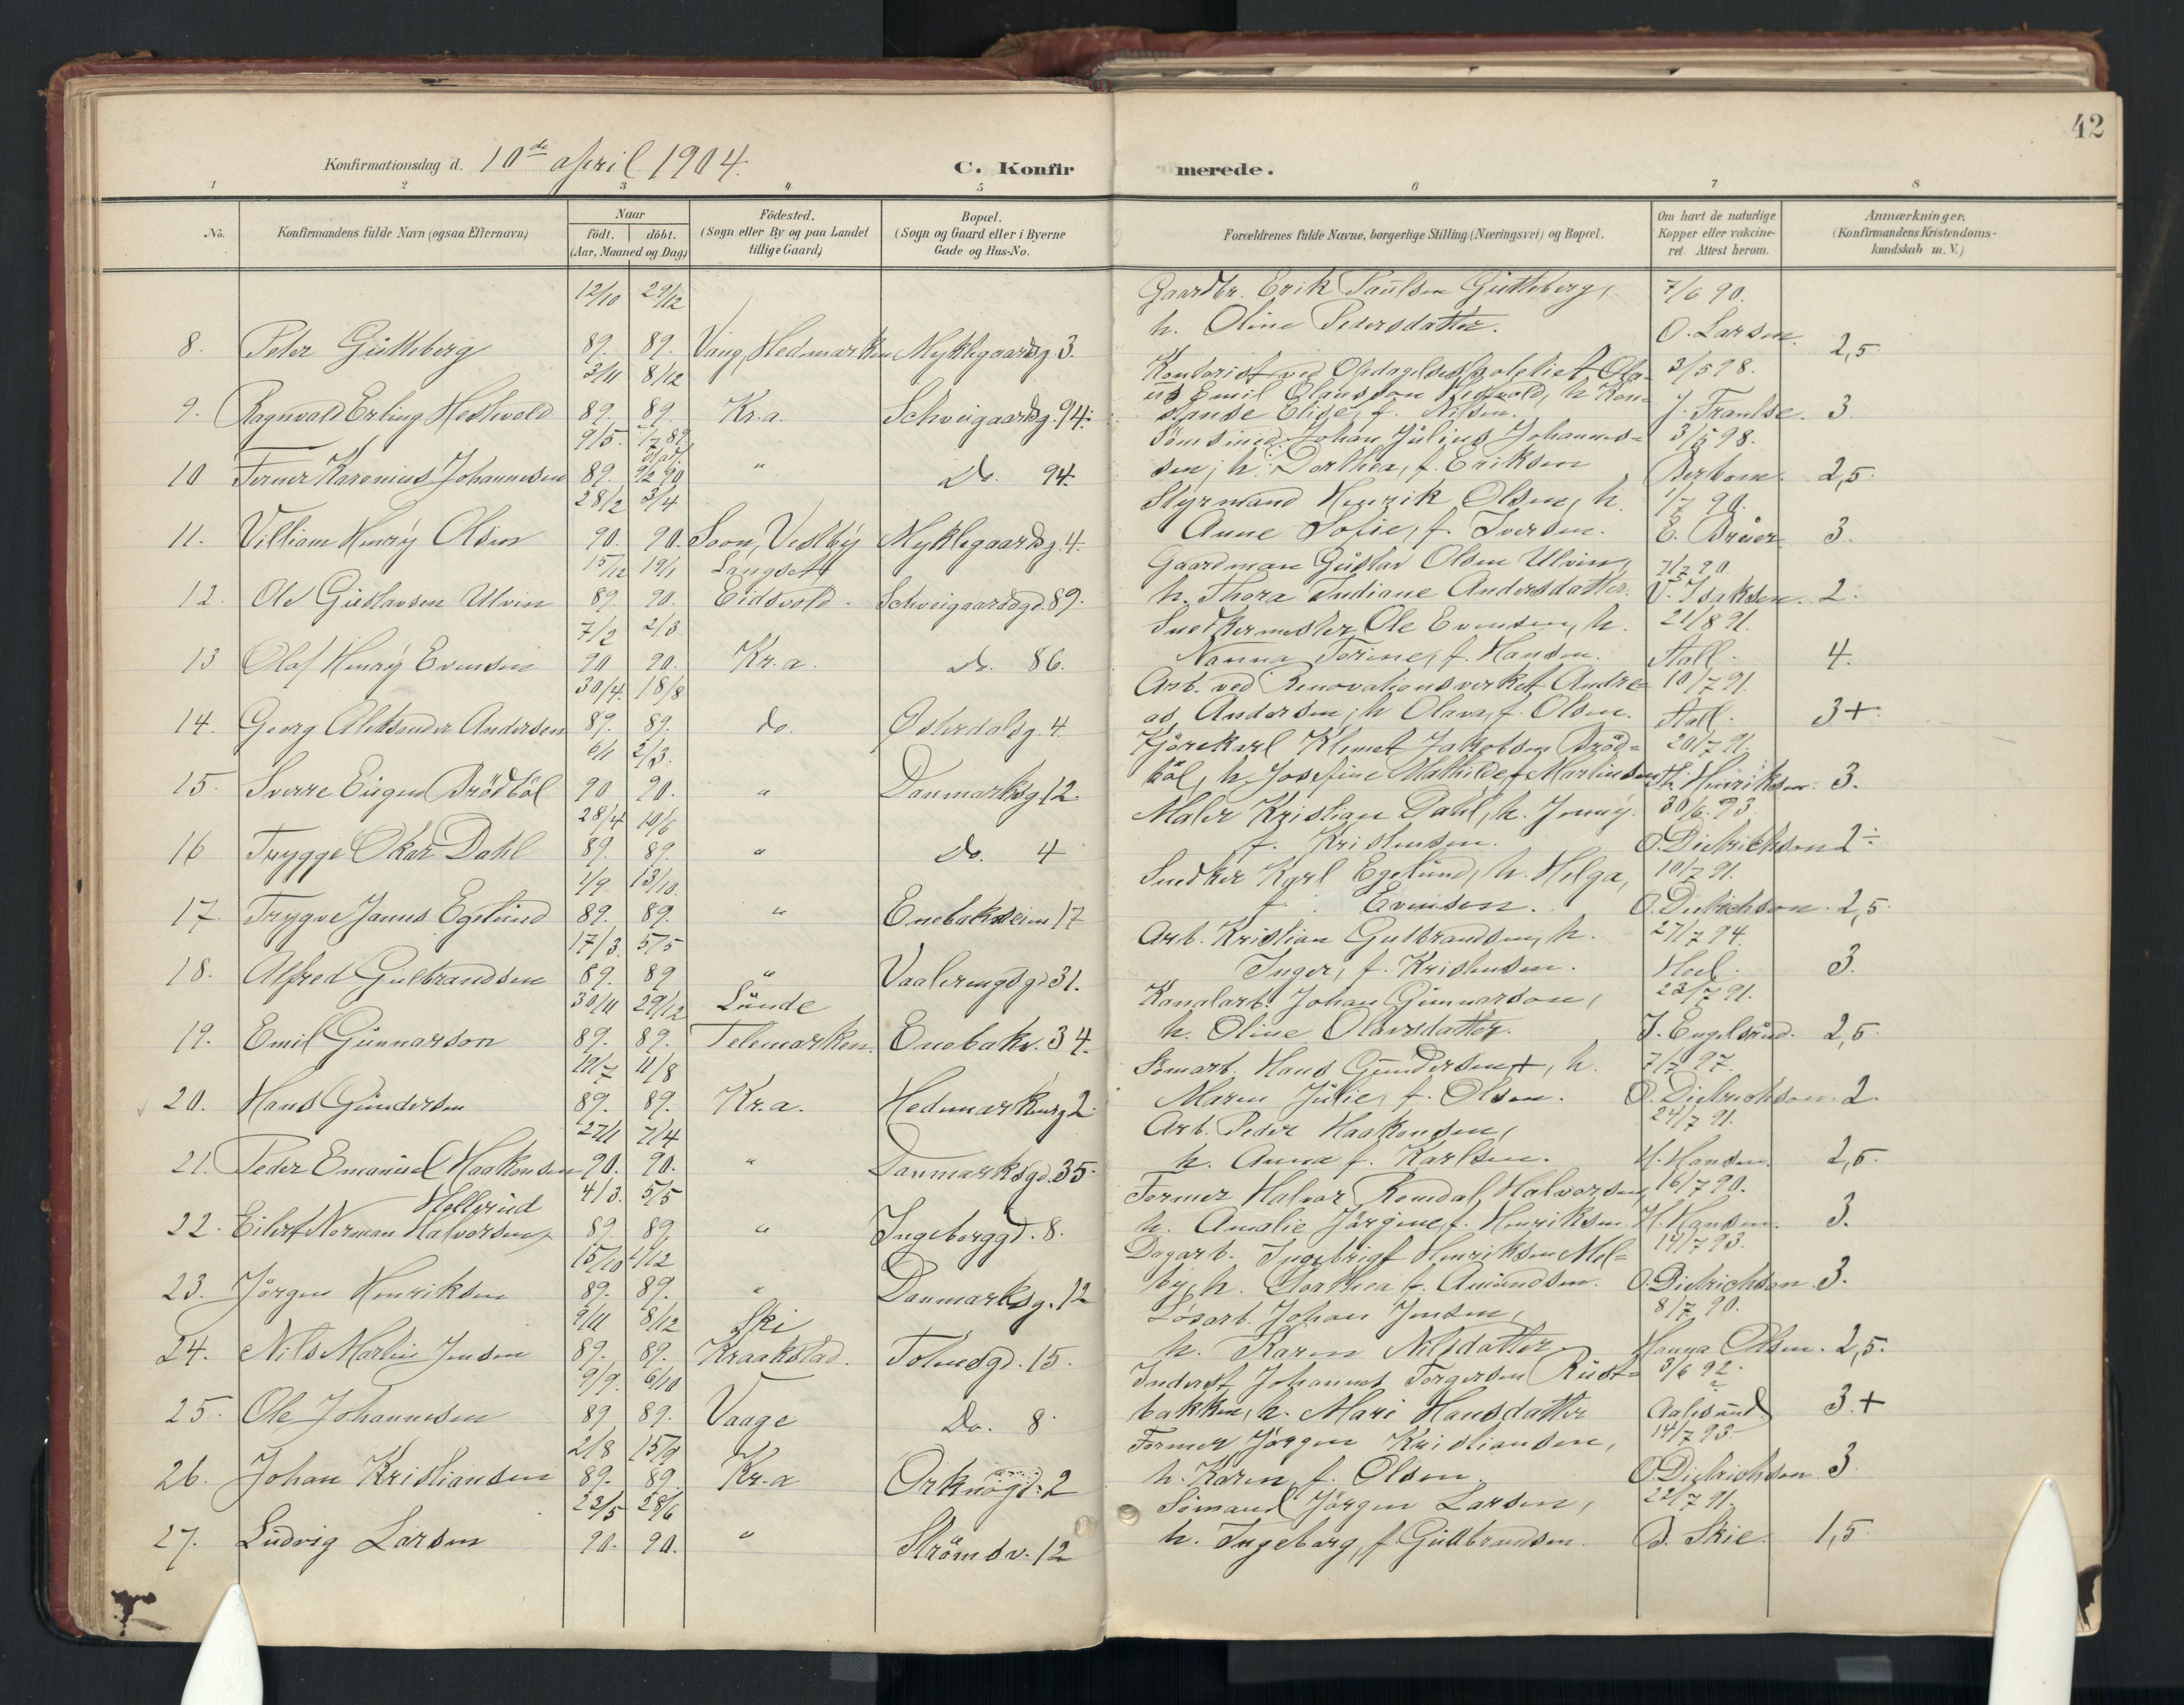 42
Konfirmationsdag d. 10de april 1904.
C. Konfirmerede.
1 2 3 4 5 6 7 8
No. Konfirmandens fulde Navn (ogsaa Efternavn) Naar födt. döbt. (Aar, Maaned og Dag) Födested. (Sogn eller By og paa Landet tillige Gaard) Bopæl. (Sogn og Gaard eller i Byerne Gade og Hus-No. Forældrenes fulde Navne, borgerlige Stilling (Næringsvei) og Bopæl. Om havt de naturlige Kopper eller vakcineret Attest herom. Anmærkninger, (Konfirmandens Kristendomskundskab m. V.)
12/10 29/12 Gaardbr. Erik Paulsen Gutteberg, 7/6 90.
h. Oline Pedersdatter. O. Larsen.
8. Peter Gutteberg 89. 89. Vang, Hedemarken Myklegaardsg. 3. 2,5
3/11 8/12 Kontorist ved Opdagelsespolitiet Ola- 3/5 98.
us Emil Olausson Hedtvold, h. Kon-
9. Ragnvald Erling Hedtvold 89. 89. Kr.a. Schweigaardsg. 94. stanse Elise, f. Nilsen. J. Frantse. 3.
9/5. 1/7 89 Sömsmed Johan Julius Johannes= 3/5 98.
10 Ferner Karenius Johannesen 89. 90 " Do. 94. sen, h. Dorthea, f. Eriksen Berbom. 2,5.
28/2 3/4 Styrmand Henrik Olsen, h. 1/7 90.
11. Villiam Henry Olsen 90. 90. Soon, Vestby Myklegaardsg. 4. Anne Sofie, f. Iversen. E. Bruer 3.
15/12 19/1 Langset Gaardman Gustav Olsen Ulvin, 7/7 90
12. Ole Gustavsen Ulvin 89. 90. Eidsvold. Schweigaardsgd. 89. h. Thora Indiane Andersdatter. V. Isaksen. 2.
7/2 2/3 Snedkermester Ole Evensen, h. 21/8 91.
13 Olaf Henry Evensen 90 90. Kr.a. Do. 86. Nanna Torine, f. Hansen. Stall. 4.
30/4. 18/8 Arb. ved Renovationsverket Andre= 10/7 91.
14. Georg Aleksander Andersen 89. 89. do. Østerdalsg. 4. as Andersen, h Olava, f. Olsen. Stall. 3+.
6/1 2/3. Kjörekarl Klemet Jakobsen Bröd= 20/7 91.
15. Sverre Eugen Brödböl 90 90. " Danmarksg 12. böl, h. Josefine Mathilde f. Martinsen Th. Henriksen. 3.
28/4 10/6 Maler Kristian Dahl, h. Jenny. 30/6. 93
16 Trygge Okar Dahl 89. 89. " Do. 4 f. Kristensen. O. Dietrichson 2÷
1/9. 13/10. Snedker Karl Egelund, h. Helga, 10/7 91.
17. Trygve Janus Egelund 89. 89. " Enebakveien 17 f. Evensen. O. Dietrichson. 2,5
17/3. 5/5 Arb. Kristian Gulbrandsen, h. 27/7 94.
18. Alfred Gulbrandsen 89. 89 " Vaalerengsgd 31. Inger, f. Kristensen. Hoel. 3.
30/11 29/12 Lunde Kanalarb. Johan Gunnarson, 23/7 91.
19. Emil Gunnarson 89. 89. Telemarken. Enebakv. 34. h. Oline Olavsdatter. J. Engelsrud. 2,5
19/7 11/8 Sömarb. Hans Gundersen +, h. 7/7 97.
20. Hans Gundersen 89. 89. Kr.a. Hedmarkensg 2. Maren Julie, f. Olsen. O. Dietrichson. 2.
27/1 7/4 Arb. Peder Haakonsen, 24/7 91.
21. Peder Emanuel Haakonsen 90. 90. " Danmarksgd. 35. h. Anna f. Karlsen. H. Hansen. 2,5.
Hellerud 4/3. 5/5 Former Halvor Romdal Halvorsen, 16/7 90.
22. Eilert Norman Halvorsen, 89 89 " Ingeborggd. 8. h. Amalie Jörgine, f. Henriksen H. Hansen. 3.
15/10 1/12 Dagarb. Ingebrigt Henriksen Mel= 14/7 93.
23. Jörgen Henriksen 89. 89. " Danmarksg. 12 by, h. Dorthea f. Amundsen. O. Dietrichson. 3.
9/11 8/12 Ski Lösarb. Johan Jensen, 8/7 90.
24. Nils Martin Jensen 89. 89. Kraakstad. Toluesgd. 15. h. Karen Nilsdatter Hanna Olsen. 2,5.
9/9. 6/10 Inderst Johannes Torgersen Rust= 3/6 92.
25. Ole Johannesen 89 89. Vaage Do. 8 bakken, h. Mari Hansdatter Aalesund 3.+
2/8 15/9 Former Jörgen Kristiansen, 14/7 93.
26. Johan Kristiansen 89. 89. Kr.a Orknögd. 2 h. Karen, f. Olsen. O. Dietrichson 3
23/5 28/6 Sömand Jörgen Larsen, 22/7 91.
27. Ludvig Larsen 90. 90. " Strömsv. 12 h. Ingeborg, f Gulbrandsen. B. Skie. 1,5